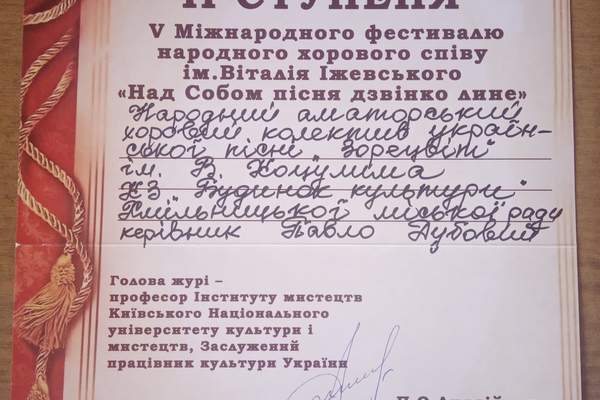 II СТУПЕНЯ
V Міжнародного фестивалю
народного хорового співу
ім.Віталія Іжевського
«Над Собом пісня дзвінко лине»
Народний аматорський
хоровий колектив україн-
ської пісні "Зорецвіт"
ім. В. Коцуліма
КЗ "Будинок культури"
Хмільницької міської раду
керівник Павло Дубовий
Голова журі –
професор Інституту мистецтв
Київського Національного
університету культури і
мистецтв, Заслужений
працівник культури України